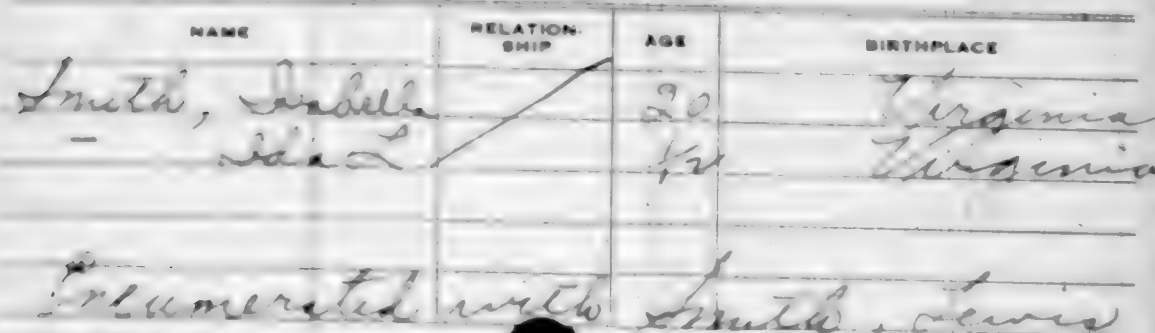 NAME RELATION-SHIP AGE BIRTHPLACE
Smith, Isabella 20 Virginia
— Ida L 1/2 Virginia
Enumerated with Smith, Lewis